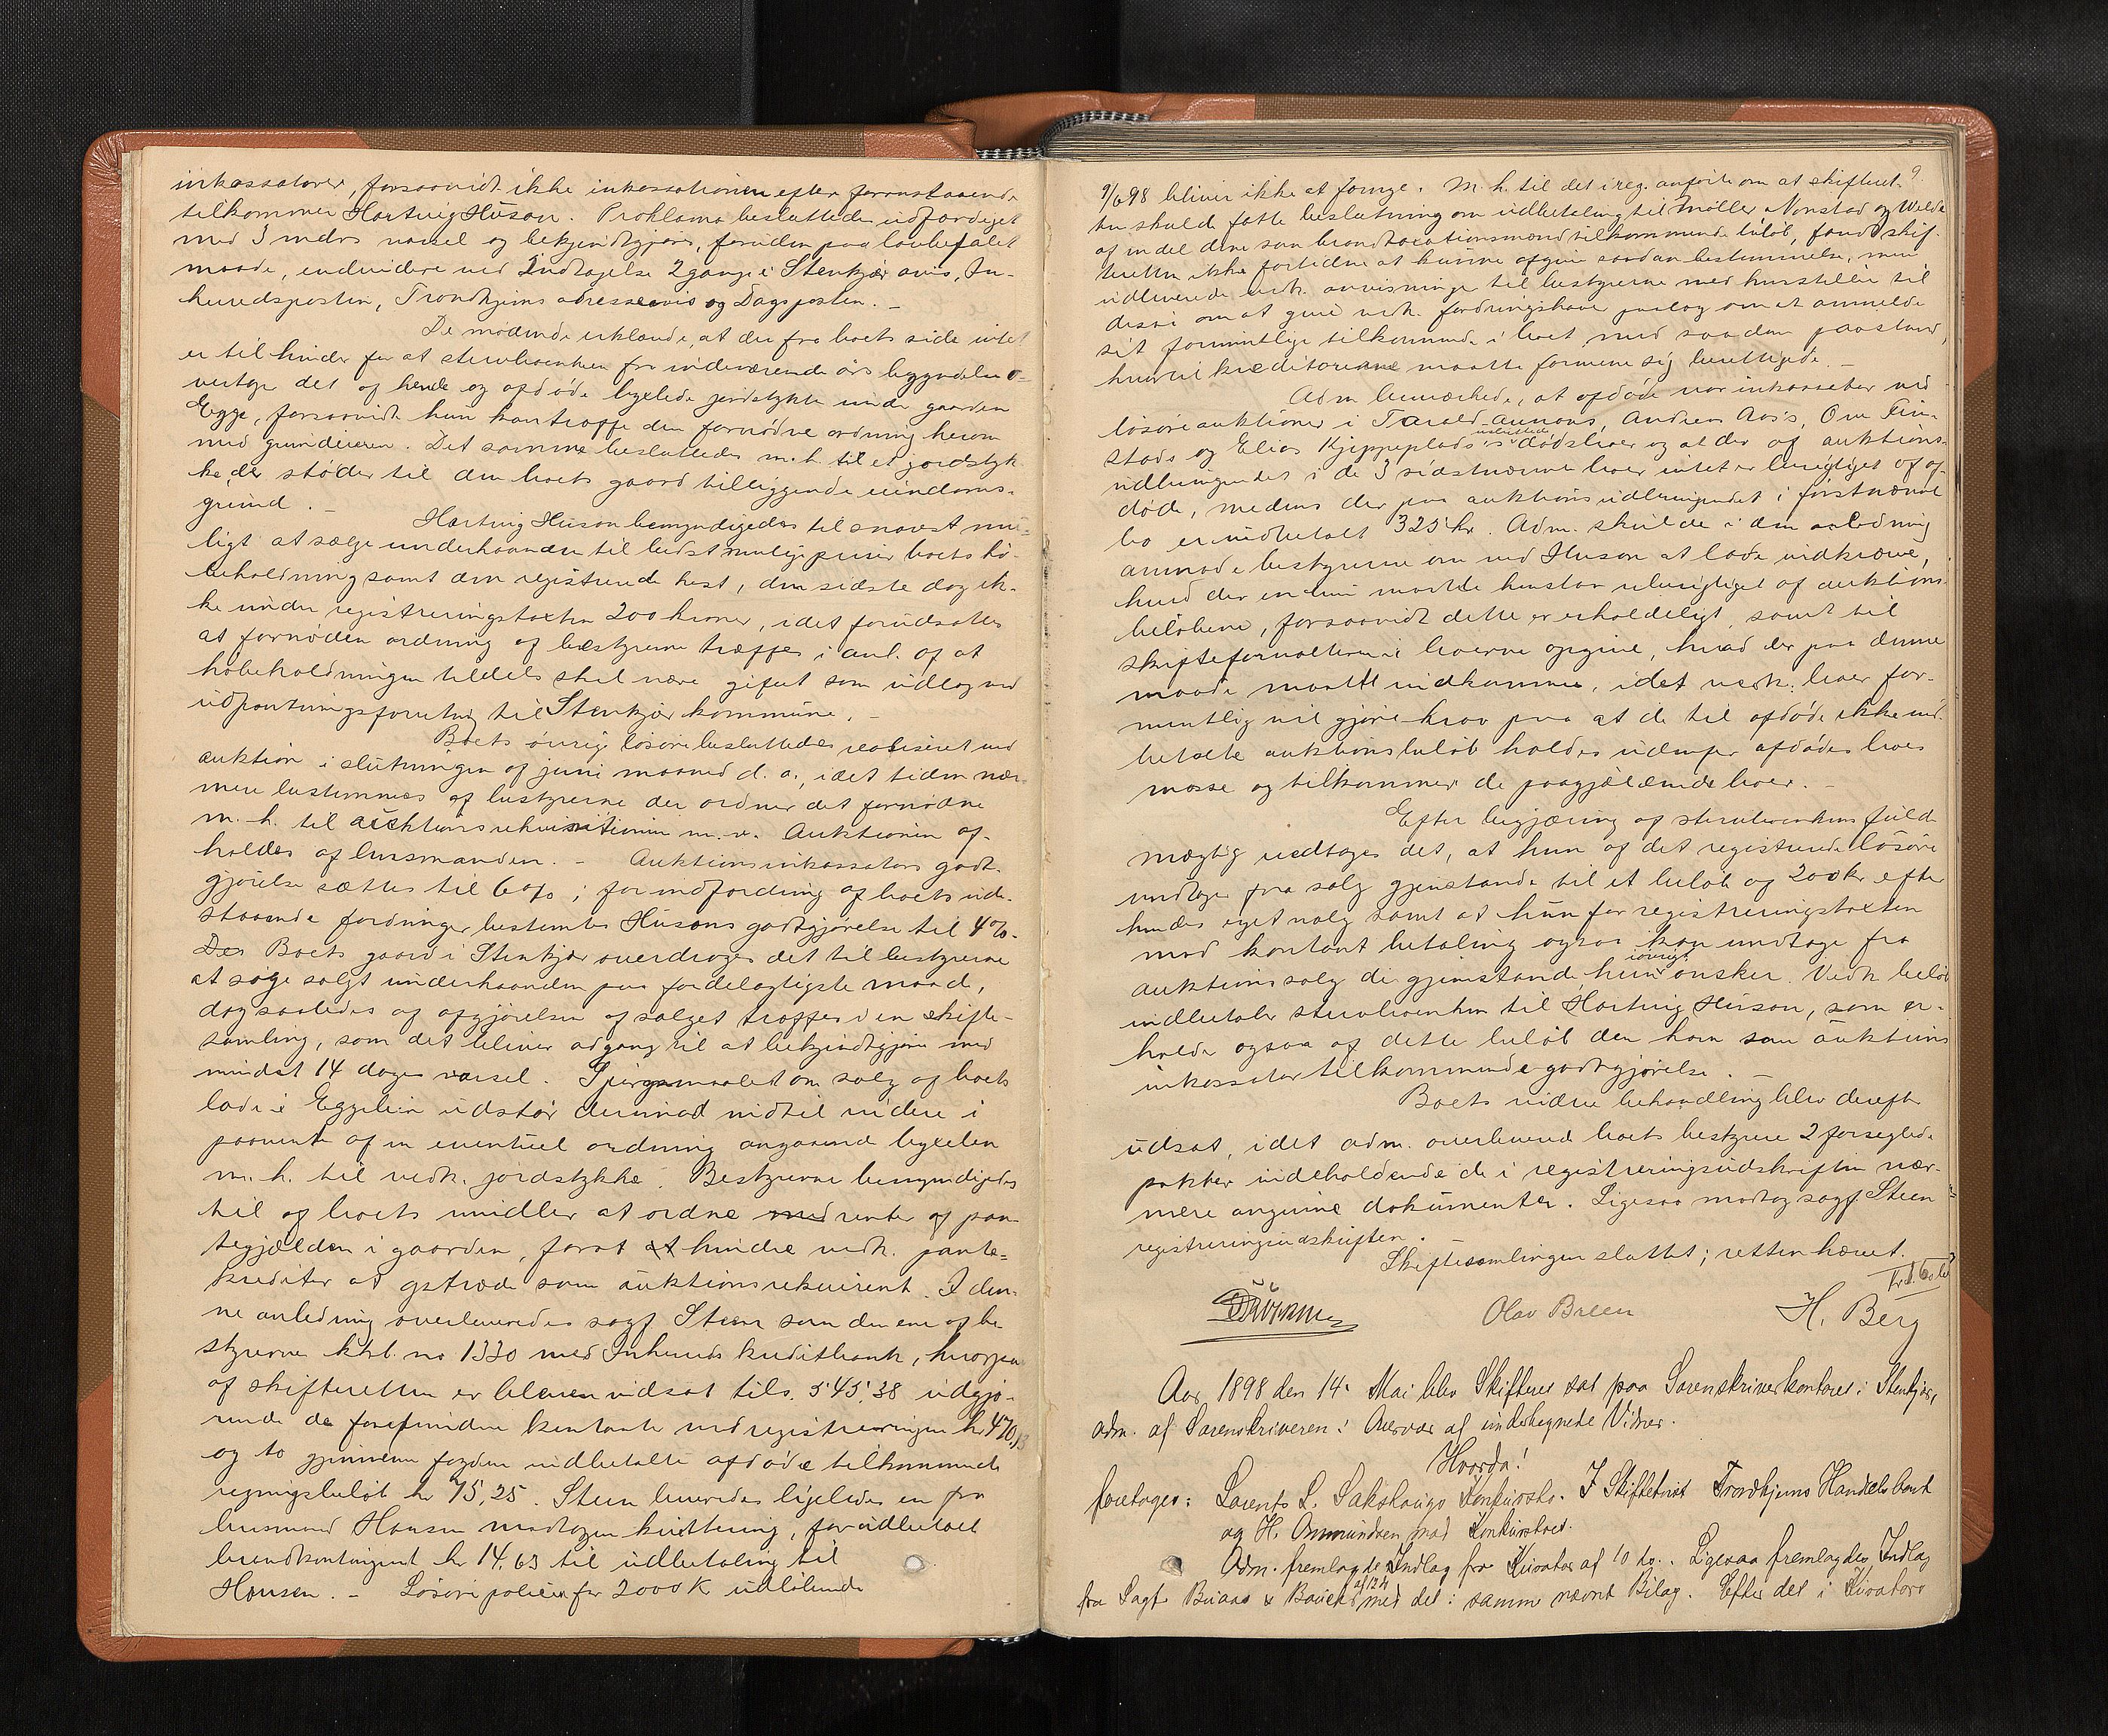 inkassatorer, forsaavidt ikke inkassationen efter foranstaaende
tilkommer Hartvig Huson. Proklama besluttedes udfærdiget
med 3 mdrs varsel og bekjendtgjøres, foruden paa lovbefalet
maade, endvidere ved Indtagelse 2 gange i Stenkjær avis, In-
heredsposten, Trondhjems adresseavis og Dagsposten. –
De mødende erklærede, at der fra boets side intet
er til hinder for at stervboenken fra indeværende års begyndelse o-
vertager det af hende og afdøde byxlede jordstykke under gaarden
Egge, forsaavidt hun kan træffe den fornødne ordning herom
med grundeieren. Det samme besluttedes m. h. til et jordstyk-
ke, der støder til den boets gaard tilliggende eiendoms-
grund. –
Hartvig Huson bemyndigedes til snarest mu-
ligt at sælge underhaanden til bedst mulige priser boets hø-
beholdning samt den registrerede hest, den sidste dog ik-
ke under registreringstaxten 200 kroner, idet forudsættes
at fornøden ordning af bestyrerne træffes i anl. af at
høbeholdningen tildels skal være gifvet som udlæg ved
udpantningsforretning til Stenkjær kommune. –
Boets øvrige løsøre besluttedes realiseret ved
auktion i slutningen af juni maaned d. a., idet tiden nær-
mere bestemmes af bestyrerne der ordner det fornødne
m. h. til auktionsrekvisitionen m. v. Auktionen af-
holdes af lensmanden. – Auktionsinkassators godt-
gjørelse sættes til 6 %; for indfordring af boets ude-
staaende fordringer bestemtes Husons godtgjørelse til 4 %.
Boets gaard i Stenkjær overdroges det til bestyrerne
at søge solgt underhaanden paa fordelagtigste maade,
dog saaledes at afgjørelsen af salget træffes i en skifte-
samling, som det bliver adgang til at bekjendtgjøre med
mindst 14 dages varsel. Spørgsmaalet om salg af boets
lade i Eggelien udstår derimod indtil videre i
paavente af en eventuel ordning angaaende byxelen
m. h. til vedk. jordstykke. Bestyrerne bemyndigedes
til af boets midler at ordne med renter af pan-
tegjælden i gaarden, forat at hindre vedk. pante-
krediter at optræde som auktionsrekvirent. I den-
ne anledning overleveredes sagf Steen som den ene af be-
styrerne ktrb. no 1330 med Inherreds kreditbank, hvorpaa
af skifteretten er bleven indsat tils. 545,38 udgjø-
rende de forefundne kontanter ved registreringen kr 470,13
og to gjennem fogden indbetalte afdøde tilkommende
regningsbeløb kr 75,25. Steen leveredes ligeledes en fra
lensmand Hansen modtagen kvittering, for udbetalt
brandkontingent kr 14,63 til udbetaling til
Hansen. – Løsørepolicen for 2000 K udløbende
9
9/6 98 bliver ikke at fornye. M. h. til det i reg. anførte om at skifteret-
ten skulde fatte beslutning om udbetaling til Møller, Nonstad og Welde
af en del dem som brandtaxationsmænd tilkommende beløb, fandt skif-
teretten ikke fortiden at kunne afgive saadan bestemmelse, men
udleverede vedk. anvisninger til bestyrerne med henstillen til
disse om at give vedk. fordringshaver paalæg om at anmelde
sit formentlige tilkommende i boet med saadan paastand,
hvortil kreditorerne maatte formene sig berettigede. –
Adm bemærkede, at afdøde var inkassator ved
løsøreauktioner i Tarald Aunans, Andreas Aas's, Ole Fin-
stads og Elias Kjeppeplads's dødsboer og at der af auktions-
udbringendet i de 3 sidstnævnte boer intet er berigtiget af af-
døde, medens der paa auktionsudbringendet i førstnævnte
bo er indbetalt 325 kr. Adm. skulde i den anledning
anmode bestyrerne om ved Huson at lade indkræve,
hvad der endnu maatte henstaa uberigtiget af auktions-
beløbene, forsaavidt dette er erholdeligt, samt til
skifteforvalteren i boerne opgive, hvad der paa denne
maade maatte indkomme, idet vedk. boer for-
mentlig vil gjøre krav paa at de til afdøde ikke ind-
betalte auktionsbeløb holdes udenfor afdødes boes
masse og tilkommer de paagjældende boer. –
Efter begjæring af stervboenkens fuld-
mægtig vedtoges det, at hun af det registrerede løsøre
undtager fra salg gjenstande til et beløb af 200 kr efter
hendes eget valg samt at hun for registreringstaxten
mod kontant betaling ogsaa kan undtage fra
auktionssalg de gjenstande hun iøvrigt ønsker. Vedk. beløb
indbetaler stervboenken til Hartvig Huson, som er-
holder ogsaa af dette beløb den ham som auktions-
inkassator tilkommende godtgjørelse. –
Boets videre behandling blev derefter
udsat, idet adm. overleverede boets bestyrere 2 forseglede
pakker indeholdende de i registreringsudskriften nær-
mere angivne dokumenter. Ligesaa modtog sagf Steen
registreringsudskriften.
Skiftesamlingen sluttet; retten hævet.
Olav Breen H. Berg
Aar 1898 den 14. Mai blev Skifteret sat paa Sorenskriverkontoret i Stenkjær,
adm. af Sorenskriveren i Overvær af undertegnede Vidner.
Hvorda!
foretoges: Lorents L. Sakshaugs Konkursbo. I Skifterivet Trondhjems Handelsbank
og H. Ommundsen mod Konkursboet.
Adm. fremlagde Indlæg fra Kurator af 10 ds. Ligesaa fremlagdes Indlæg
fra Sagf. Buaas & Bauck af 12 ds med det i samme nævnt Bilag. Efter det i Kurators